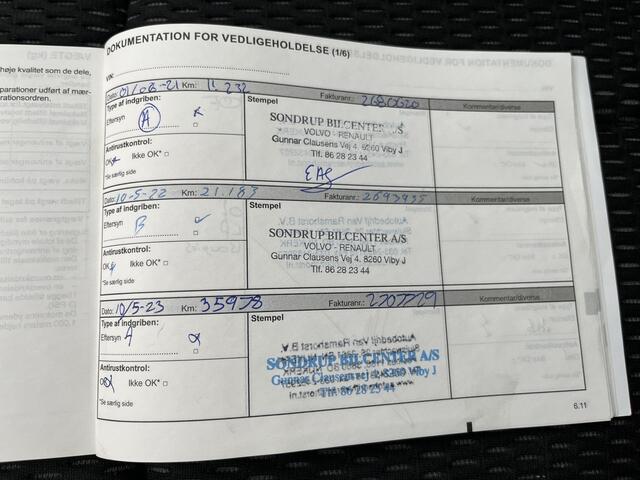 VÆGTE (kg)
høje kvalitet som de dele,
parationer udført af mær-
rationsordren.
DOKUMENTATION FOR VEDLIGEHOLDELSE (1/6)
VIN:
Dato: 01/08-21 Km: 11.232 Fakturanr.: Kommentar/diverse
Type af indgriben: Stempel
Eftersyn A
SONDRUP BILCENTER A/S
VOLVO - RENAULT
Gunnar Clausens Vej 4, 8260 Viby J
Tlf. 86 28 23 44
Antirustkontrol:
OK Ikke OK*
*Se særlig side
Dato: 10-5-22 Km: 21.183 Fakturanr.: 2693935 Kommentar/diverse
Type af indgriben: Stempel
Eftersyn B
SONDRUP BILCENTER A/S
VOLVO - RENAULT
Gunnar Clausens Vej 4, 8260 Viby J
Tlf. 86 28 23 44
Antirustkontrol:
OK Ikke OK*
*Se særlig side
Dato: 10/5-23 Km: 35978 Fakturanr.: 2707729 Kommentar/diverse
Type af indgriben: Stempel
Eftersyn A
SONDRUP BILCENTER A/S
Gunnar Clausensvej 4, 8260 Viby J
Tlf. 86 28 23 44
Antirustkontrol:
OK Ikke OK*
*Se særlig side
6.11